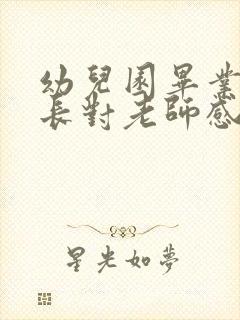 幼兒園畢業
長對老師感
星光如夢